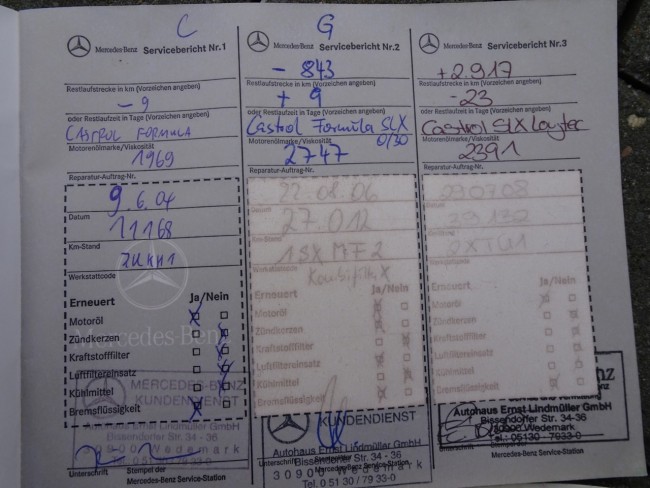 C
Mercedes-Benz Servicebericht Nr.1
Restlaufstrecke in km (Vorzeichen angeben)
- 9
oder Restlaufzeit in Tage (Vorzeichen angeben)
CASTROL FORMULA
Motorenölmarke/Viskosität
1969
Reparatur-Auftrag-Nr.
9.6.04
Datum
11168
Km-Stand
Werkstattcode
Erneuert Ja/Nein
Motoröl
Zündkerzen
Kraftstofffilter
Luftfiltereinsatz
Kühlmittel
Bremsflüssigkeit
Mercedes-Benz
MERCEDES-BENZ
KUNDENDIENST
Autohaus Ernst Lindmüller GmbH
Bissendorfer Str. 34 - 36
30900 Wedemark
Tel. 0 51 30 / 79 33-0
Unterschrift Stempel der
Mercedes-Benz Service-Station
G
Mercedes-Benz Servicebericht Nr.2
- 843
Restlaufstrecke in km (Vorzeichen angeben)
+ 9
oder Restlaufzeit in Tage (Vorzeichen angeben)
Castrol Formula SLX
0/30
Motorenölmarke/Viskosität
2747
Reparatur-Auftrag-Nr.
22.08.06
27.012
Km-Stand
Kombifilter X
Erneuert Ja/Nein
Motoröl
Zündkerzen
Kraftstofffilter
Luftfiltereinsatz
Kühlmittel
Bremsflüssigkeit
KUNDENDIENST
Autohaus Ernst Lindmüller GmbH
Bissendorfer Str. 34 - 36
30900 Wedemark
Tel. 0 51 30 / 79 33-0
Unterschrift
Mercedes-Benz Service-Station
Mercedes-Benz Servicebericht Nr.3
+2.917
Restlaufstrecke in km (Vorzeichen angeben)
- 23
oder Restlaufzeit in Tage (Vorzeichen angeben)
Castrol SLX Longtec
Motorenölmarke/Viskosität
2391
Reparatur-Auftrag-Nr.
290708
Erneuert Ja/Nein
Motoröl
Zündkerzen
Kraftstofffilter
Luftfiltereinsatz
Kühlmittel
Bremsflüssigkeit
Autohaus Ernst Lindmüller GmbH
Bissendorfer Str. 34-36
30900 Wedemark
Tel.: 05130 - 7933-0
Unterschrift Stempel der
Mercedes-Benz Service-Station